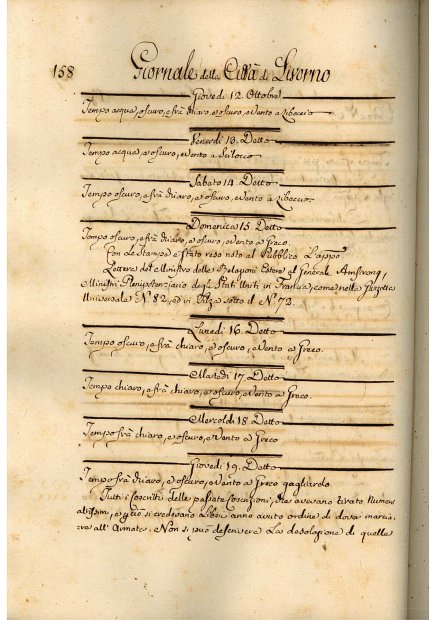 158 Giornale della Città di Livorno
Giovedì 12. Ottobre
Tempo acqua, oscuro, e frà chiaro, e oscuro, e Vento a Libeccio
Venerdì 13. Detto
Tempo acqua, e oscuro, Vento a Scilocco
Sabato 14. Detto
Tempo oscuro, e frà chiaro, e oscuro, e Vento a Libeccio.
Domenica 15. Detto
Tempo oscuro, e frà chiaro, e oscuro, e Vento a Greco.
Con le Stampe è stato reso noto al Pubblico L'appo
Lettera del Ministro delle Relazioni Estere al Generale Amstrong,
Ministro Plenipotenziario degli Stati Uniti in Francia, come nella Gazzetta
Universale N.º 82, ed in Filza sotto il N.º 72.
Lunedì 16. Detto
Tempo oscuro, e frà chiaro, e oscuro, e Vento a Greco.
Martedì 17. Detto
Tempo chiaro, e frà chiaro, e oscuro, e Vento a Greco.
Mercoldì 18. Detto
Tempo frà chiaro, e oscuro, e Vento a Greco
Giovedì 19. Detto
Tempo frà chiaro, e oscuro, e Vento a Greco gagliardo.
Tutti i coscritti delle passate coscrizioni, che avevano tirato Numeri
altissimi, e già si credevano Liberi anno avuto ordine di dover marcia-
re all'Armate. Non si può descrivere La desolazione di quelle